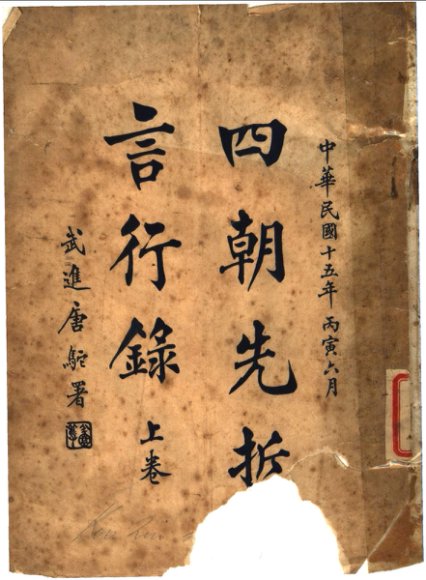 中華民國十五年 丙寅六月
四朝先哲
言行錄 上卷
武進唐駝署